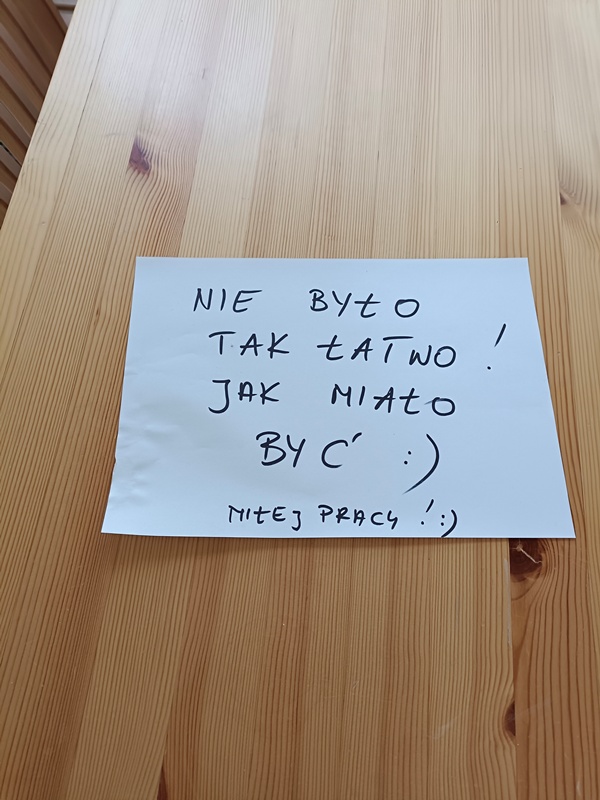 NIE BYŁO
TAK ŁATWO !
JAK MIAŁO
BYĆ :)
MIŁEJ PRACY ! :)